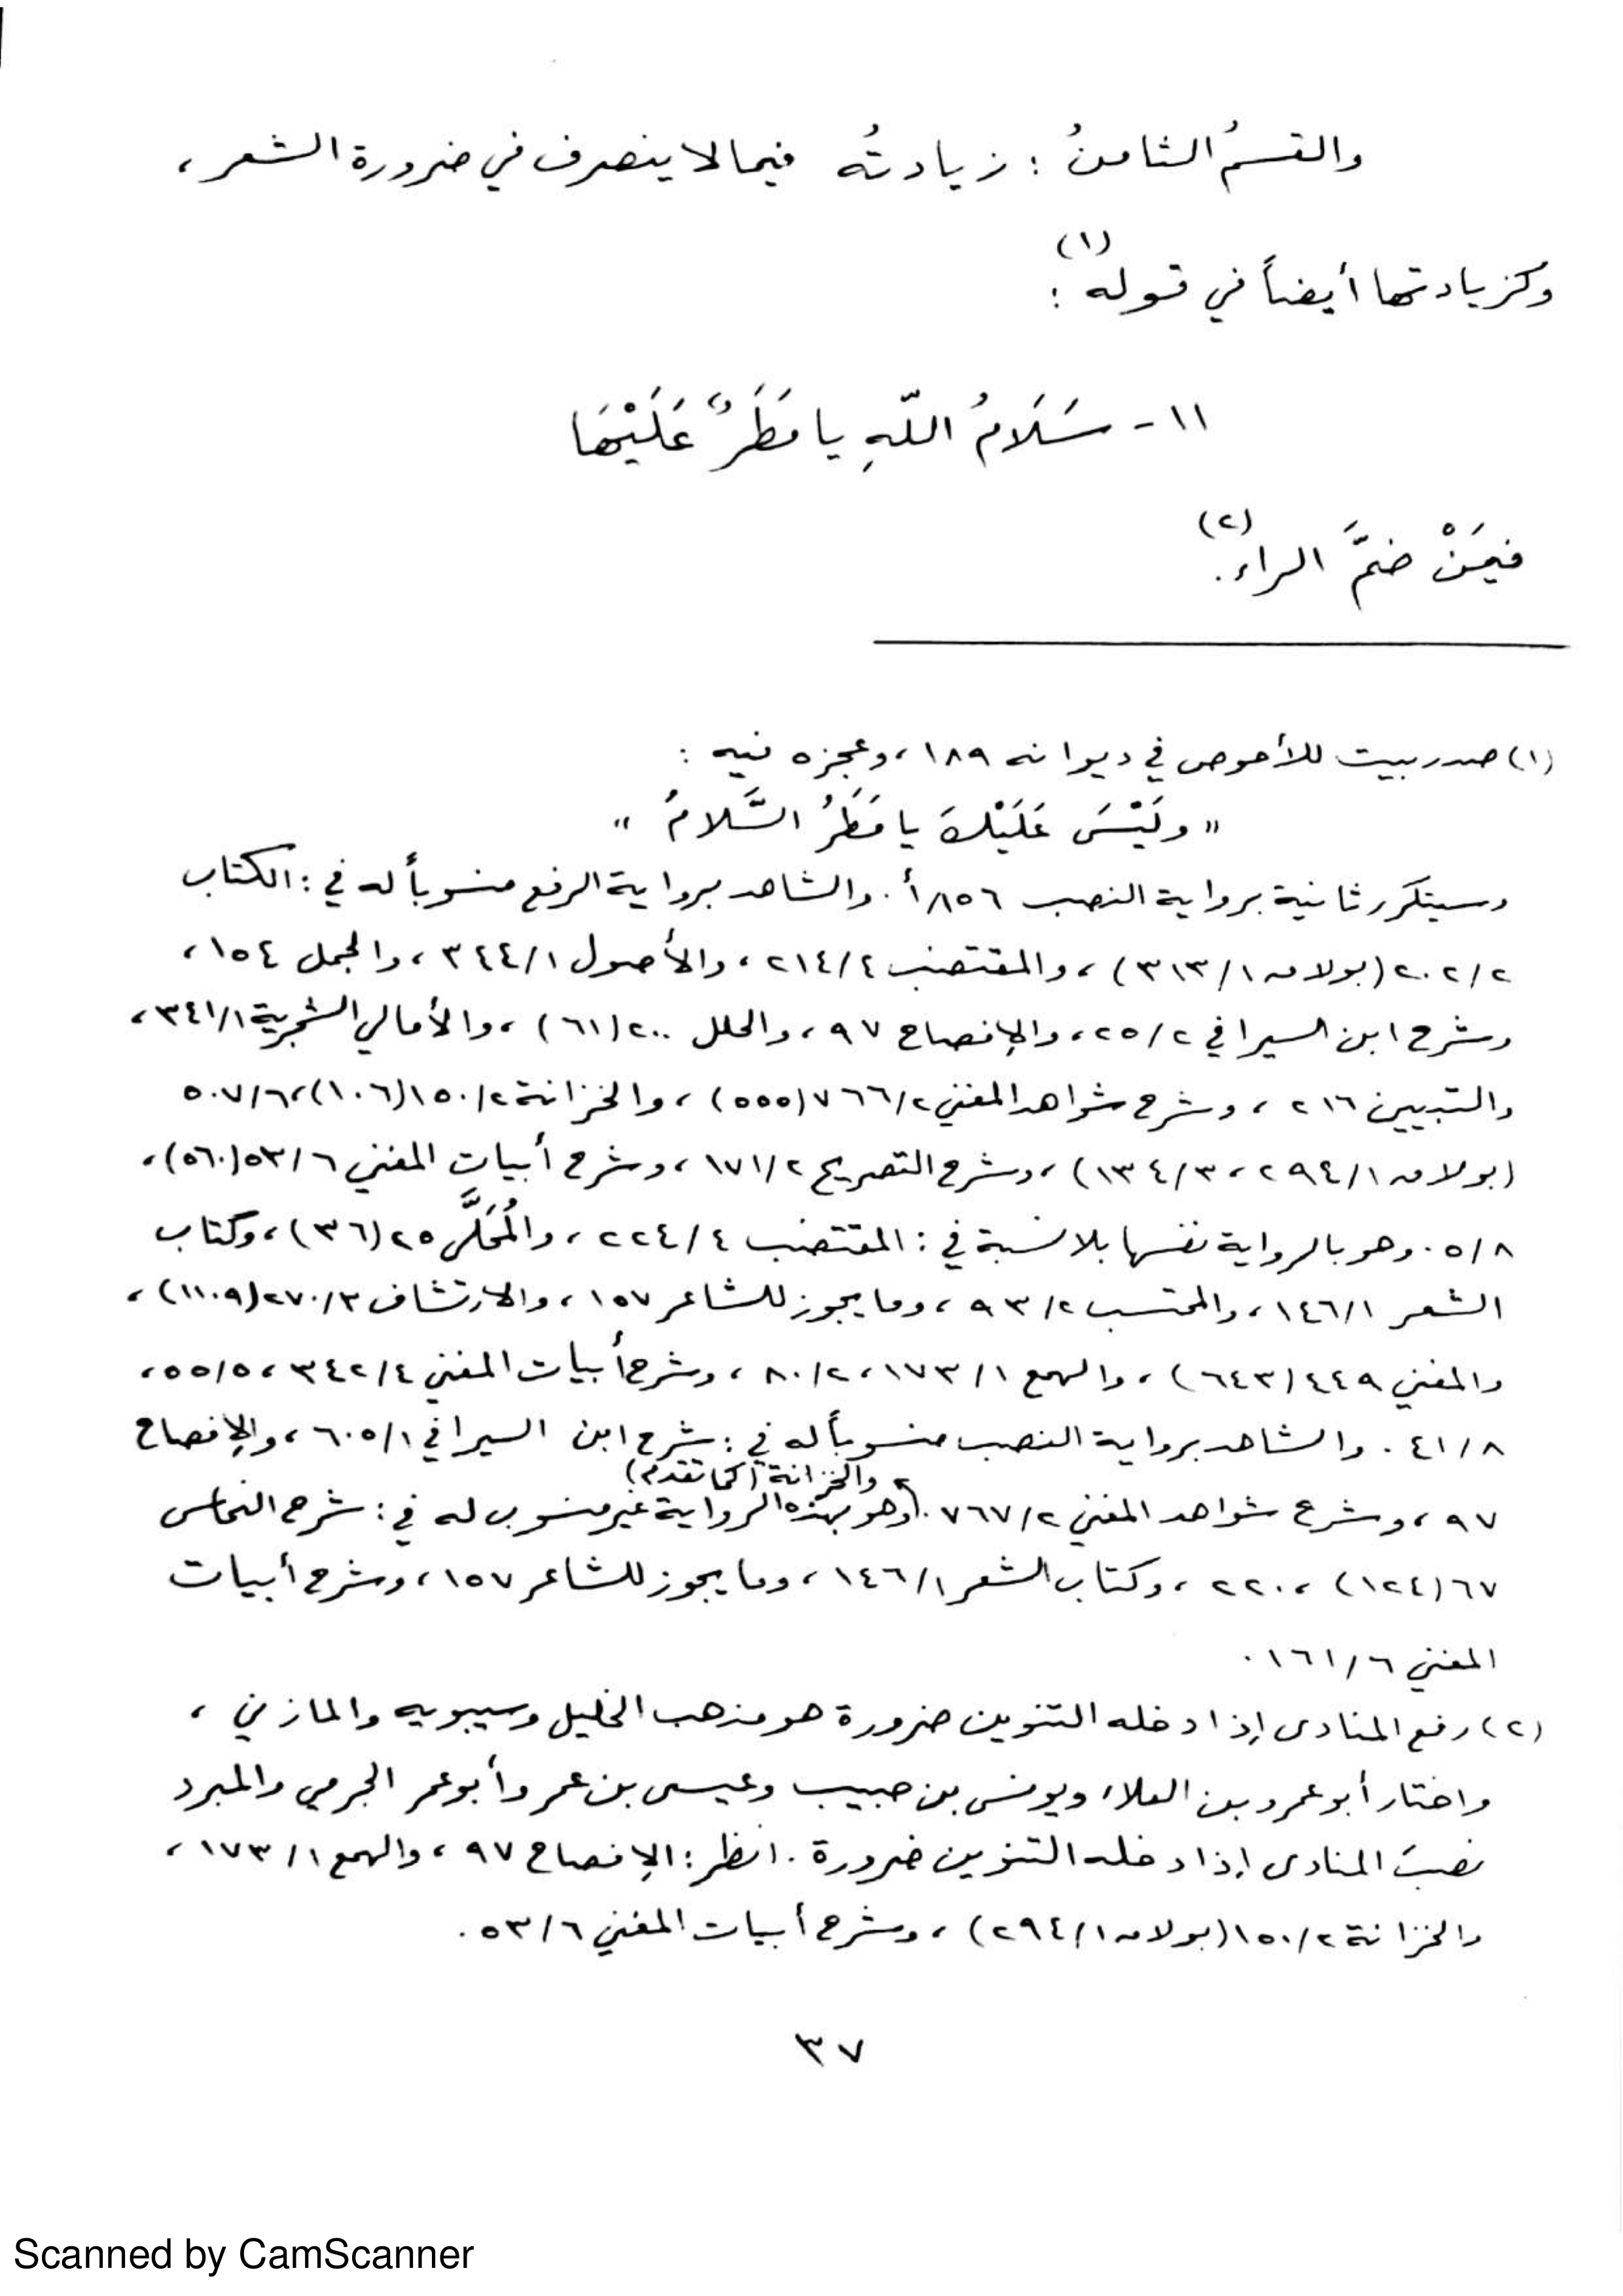 والقسمُ الثامنُ : زيادتُه فيما لا ينصرف في ضرورة الشعر ،
وكزيادتها أيضاً في قوله(١) :
١١ - سَلَامُ اللّهِ يا مَطَرٌ عَلَيْهَا
فيمَنْ ضمَّ الراء(٢).
(١) صدر بيت للأحوص في ديوانه ١٨٩ ، وعجزه فيه :
" ولَيْسَ عَلَيْكَ يا مَطَرُ السَّلامُ "
وسيتكرر ثانية برواية النصب ٨٥٦/أ . والشاهد برواية الرفع منسوباً له في : الكتاب
٢٠٢/٢ (بولاق ٣١٣/١) ، والمقتضب ٢١٤/٤ ، والأصول ٣٤٤/١ ، والجمل ١٥٤ ،
وشرح ابن السيرافي ٢٥/٢ ، والإفصاح ٩٧ ، والحلل ٢٠٠ (٦١) ، والأمالي الشجرية ٣٤١/١ ،
والتبيين ٢١٦ ، وشرح شواهد المغني ٧٦٦/٢ (٥٥٥) ، والخزانة ١٥٠/٢ (١٠٦) ، ٥٠٧/٦
(بولاق ٢٩٤/١ ، ١٣٤/٣) ، وشرح التصريح ١٧١/٢ ، وشرح أبيات المغني ٥٣/٦ (٥٦٠) ،
٥/٨ . وهو بالرواية نفسها بلا نسبة في : المقتضب ٢٢٤/٤ ، والمُحَلَّى ٢٥ (٣٦) ، وكتاب
الشعر ١٤٦/١ ، والمحتسب ٩٣/٢ ، وما يجوز للشاعر ١٥٧ ، والارتشاف ٢٧٠/٣ (١١٠٩) ،
والمغني ٤٤٩ (٦٤٣) ، والهمع ١٧٣/١ ، ٨٠/٢ ، وشرح أبيات المغني ٣٤٢/٤ ، ٥٥/٥ ،
٤١/٨ . والشاهد برواية النصب منسوباً له في : شرح ابن السيرافي ٦٠٥/١ ، والإفصاح
، والخزانة (كما تقدم)
٩٧ ، وشرح شواهد المغني ٧٦٧/٢ . وهو بهذه الرواية غير منسوب له في : شرح النحاس
٦٧ (١٢٤) ، ٢٢٠ ، وكتاب الشعر ١٤٦/١ ، وما يجوز للشاعر ١٥٧ ، وشرح أبيات
المغني ١٦١/٦ .
(٢) رفع المنادى إذا دخله التنوين ضرورة هو مذهب الخليل وسيبويه والمازني ،
واختار أبو عمرو بن العلاء ويونس بن حبيب وعيسى بن عمر وأبو عمر الجرمي والمبرد
نصبَ المنادى إذا دخله التنوين ضرورة . انظر : الإفصاح ٩٧ ، والهمع ١٧٣/١ ،
والخزانة ١٥٠/٢ (بولاق ٢٩٤/١) ، وشرح أبيات المغني ٥٣/٦ .
٣٧
Scanned by CamScanner